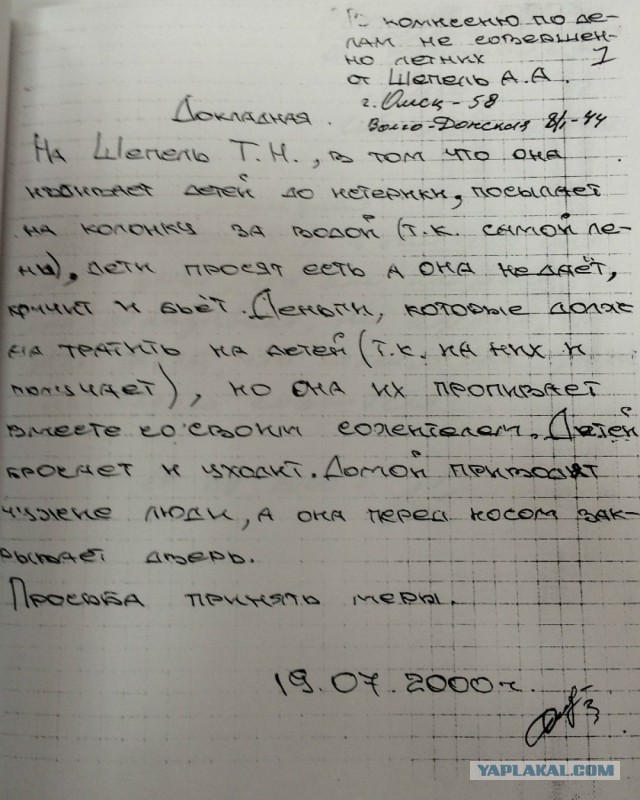 В комисению по де-
лам не совершен-
но летних 1
от Шепель А.А.
г. Омск-58
Волго-Донская 8/1-44
Докладная.
На Шепель Т.Н., в том что она
избивает детей до истерики, посылает
на колонку за водой (т.к. самой ле-
нь), дети просят есть а она не даёт,
кричит и бьёт. Деньги, которые долж
на тратить на детей (т.к. на них и
получает), но она их пропивает
вместе со своим сожителем. Детей
бросает и уходит. Домой приводят
чужие люди, а она перед носом зак-
рывает дверь.
Просьба принять меры.
19.07.2000г.
YAPLAKAL.COM